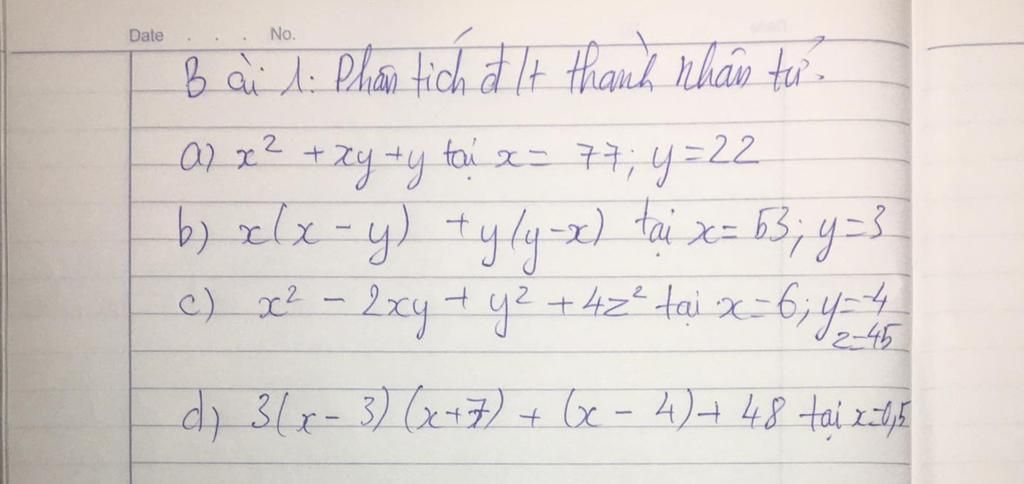 Date . . . No.
Bài 1: Phân tích đ/t thành nhân tử.
a) x² + xy + y tại x = 77; y = 22
b) x(x - y) + y(y - x) tại x = 53; y = 3
c) x² - 2xy + y² + 4z² tại x = 6; y = -4
z = 45
d) 3(x - 3)(x + 7) + (x - 4) + 48 tại x = 0,5